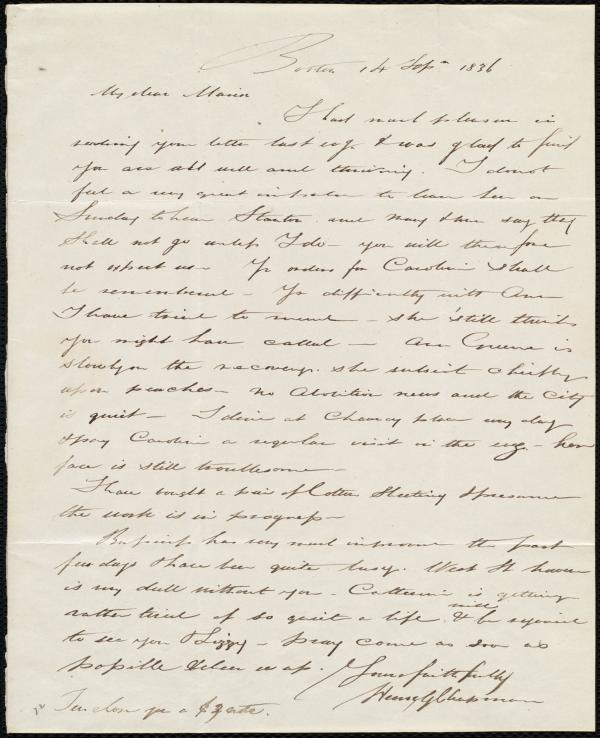 Boston 14 Sepr 1836
My dear Maria
I had much pleasure in
reading your letter last evg. & was glad to find
you are all well and thriving. I do not
feel a very great to leave here on
Sunday to hear Stanton and Mary & Ann say they
shall not go unless I do - you will therefore
not expect us - Yr orders for Caroline shall
be remembered - Yr difficulty with Ann
I have tried to mend - she still thinks
you might have called - Ann Greene is
slowly on the recovery. she subsist chiefly
upon peaches - no Abolition news and the City
is quiet - I dine at Chauncy place every day
& pay Caroline a regular visit in the evg. - her
face is still troublesome -
I have bought a pair of Cotton Sheeting & presume
the work is in progress -
Business has very much improved the past
few days & have been quite busy. West St house
is very dull without you - Catherine is getting
rather tired of so quiet a life & will be rejoiced
to see you & Lizzy - pray come as soon as
possible & cheer us up. Yours faithfully
Henry G Chapman
Inclose you a $ 2 note.